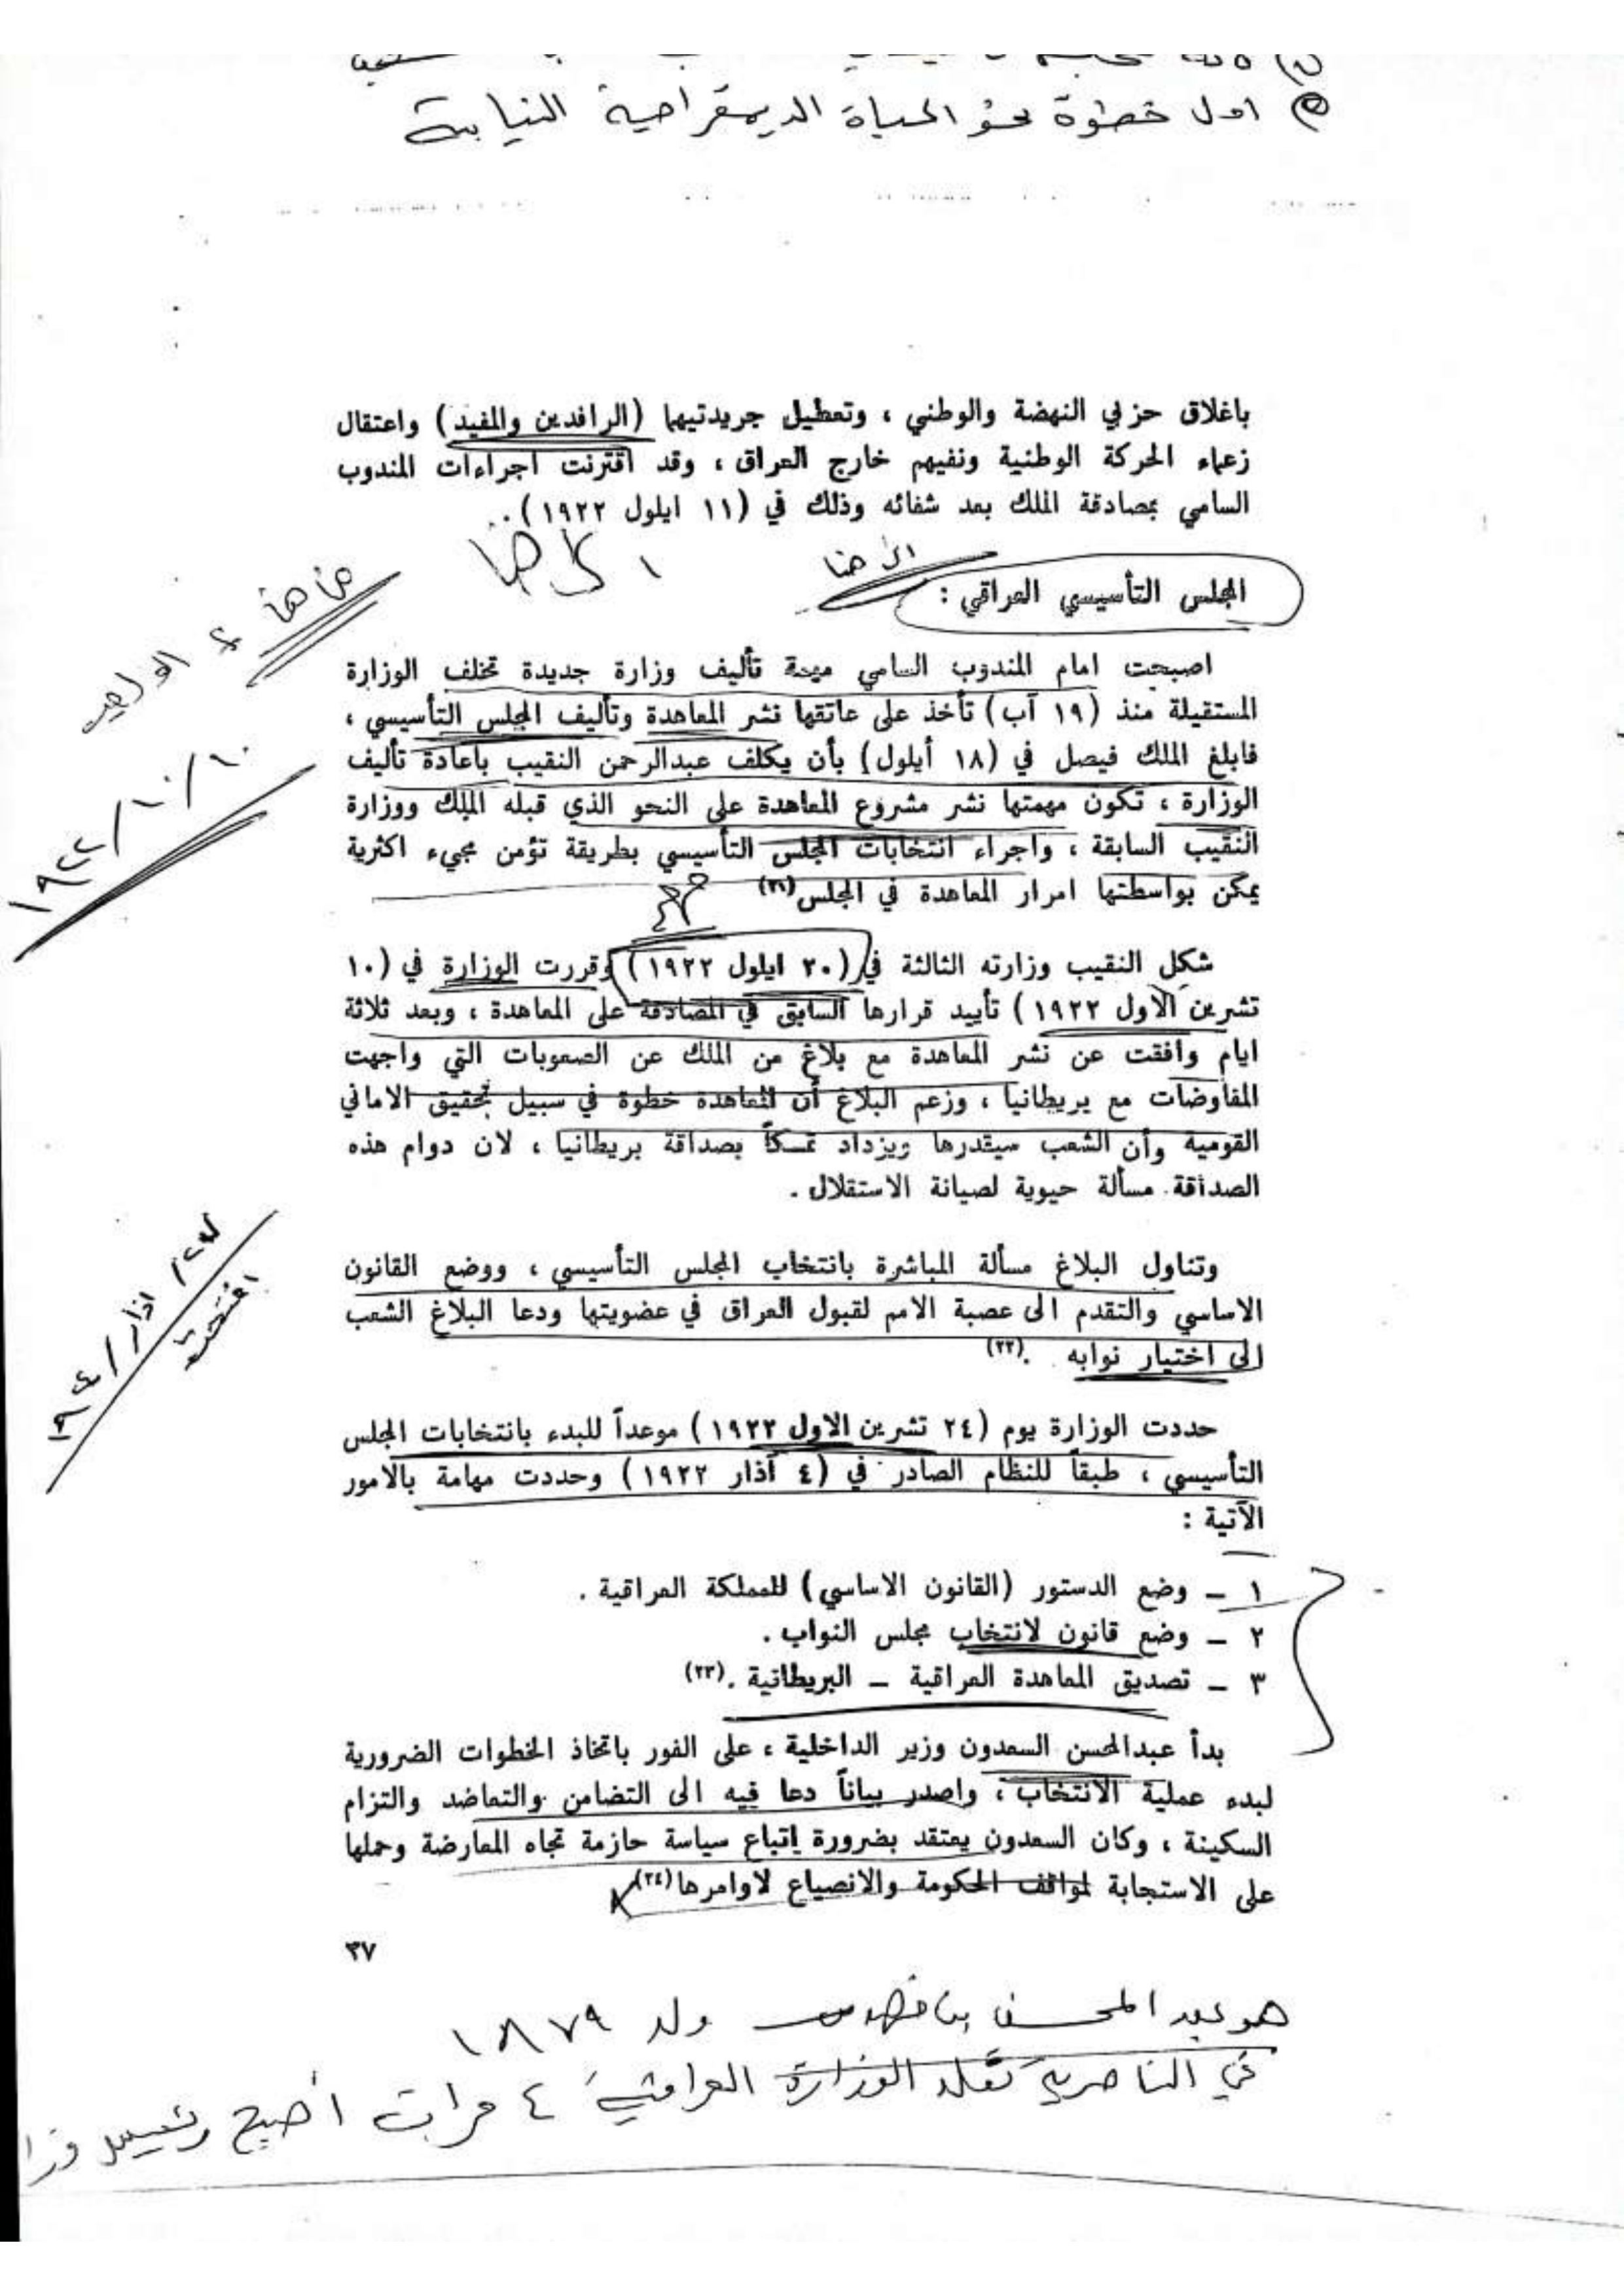 اول خطوة نحو الحياة الديمقراطية النيابية
باغلاق حزبي النهضة والوطني ، وتعطيل جريدتيهما (الرافدين والمفيد) واعتقال
زعماء الحركة الوطنية ونفيهم خارج العراق ، وقد اقترنت اجراءات المندوب
السامي بمصادقة الملك بعد شفائه وذلك في (١١ ايلول ١٩٢٢) .
المجلس التأسيسي العراقي :
اصبحت امام المندوب السامي مهمة تأليف وزارة جديدة تخلف الوزارة
المستقيلة منذ (١٩ آب) تأخذ على عاتقها نشر المعاهدة وتأليف المجلس التأسيسي ،
فابلغ الملك فيصل في (١٨ أيلول) بأن يكلف عبدالرحمن النقيب باعادة تأليف
الوزارة ، تكون مهمتها نشر مشروع المعاهدة على النحو الذي قبله الملك ووزارة
النقيب السابقة ، واجراء انتخابات المجلس التأسيسي بطريقة تؤمن مجيء اكثرية
يمكن بواسطتها امرار المعاهدة في المجلس
١٩٢٢/١٠/١٠
شكل النقيب وزارته الثالثة في (٣٠ ايلول ١٩٢٢) وقررت الوزارة في (١٠
تشرين الاول ١٩٢٢) تأييد قرارها السابق في المصادقة على المعاهدة ، وبعد ثلاثة
ايام وافقت عن نشر المعاهدة مع بلاغ من الملك عن الصعوبات التي واجهت
المفاوضات مع بريطانيا ، وزعم البلاغ أن المعاهدة خطوة في سبيل تحقيق الاماني
القومية وأن الشعب سيقدرها ويزداد تمسكاً بصداقة بريطانيا ، لان دوام هذه
الصداقة مسألة حيوية لصيانة الاستقلال .
وتناول البلاغ مسألة المباشرة بانتخاب المجلس التأسيسي ، ووضع القانون
الاساسي والتقدم الى عصبة الامم لقبول العراق في عضويتها ودعا البلاغ الشعب
الى اختيار نوابه .(٢٢)
حددت الوزارة يوم (٢٤ تشرين الاول ١٩٢٢) موعداً للبدء بانتخابات المجلس
التأسيسي ، طبقاً للنظام الصادر في (٤ آذار ١٩٢٢) وحددت مهامة بالامور
الآتية :
١ – وضع الدستور (القانون الاساسي) للمملكة العراقية .
٢ – وضع قانون لانتخاب مجلس النواب .
٣ – تصديق المعاهدة العراقية – البريطانية .(٢٣)
بدأ عبدالمحسن السعدون وزير الداخلية ، على الفور باتخاذ الخطوات الضرورية
لبدء عملية الانتخاب ، واصدر بياناً دعا فيه الى التضامن والتعاضد والتزام
السكينة ، وكان السعدون يعتقد بضرورة اتباع سياسة حازمة تجاه المعارضة وحملها
على الاستجابة لمواقف الحكومة والانصياع لاوامرها(٢٤)
٣٧
هو عبد المحسن بن فهد ولد ١٨٧٩
في الناصرية تقلد الوزارة العراقية ٤ مرات أصبح رئيس وزرا